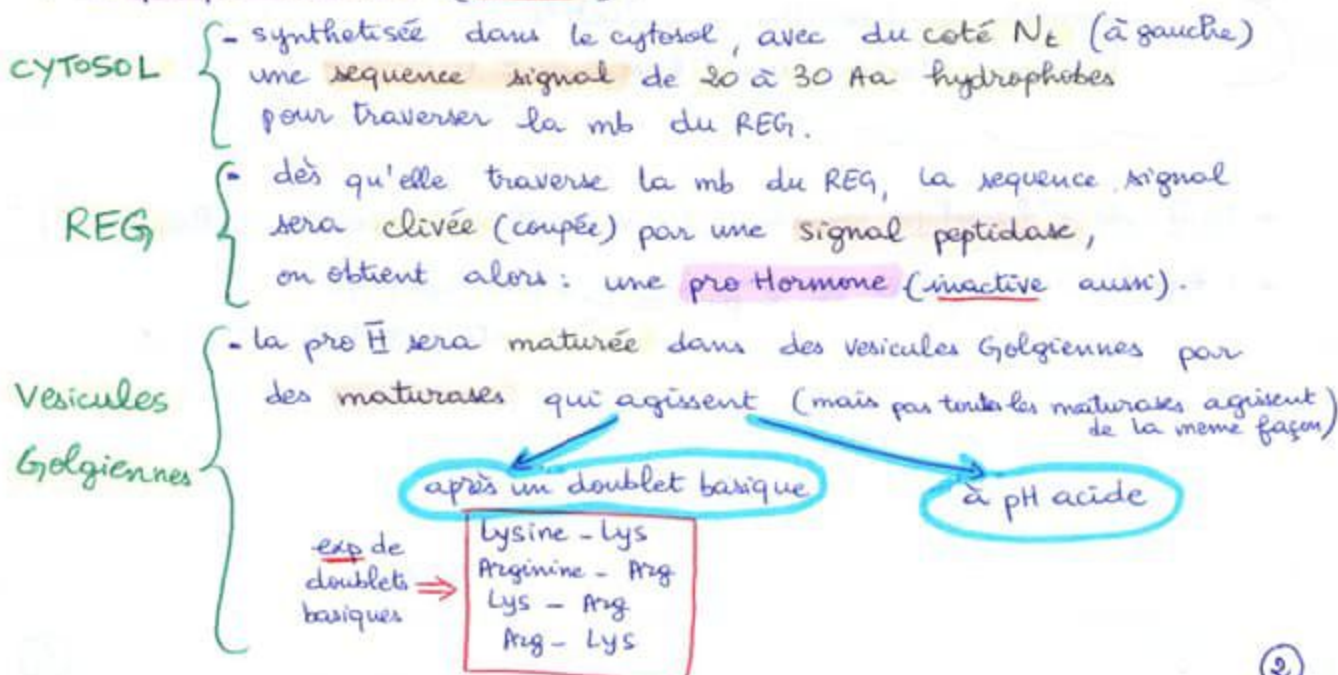 CYTOSOL
- synthetisée dans le cytosol, avec du coté Nt (à gauche)
une sequence signal de 20 à 30 Aa hydrophobes
pour traverser la mb du REG.
REG
- dès qu'elle traverse la mb du REG, la sequence signal
sera clivée (coupée) par une signal peptidase,
on obtient alors : une pro Hormone (inactive aussi).
Vesicules
Golgiennes
- la pro H̅ sera maturée dans des vesicules Golgiennes par
des maturases qui agissent (mais pas toutes les maturases agissent
de la meme façon)
après un doublet basique
à pH acide
exp de
doublets
basiques ⇒
Lysine - Lys
Arginine - Arg
Lys - Arg
Arg - Lys
2